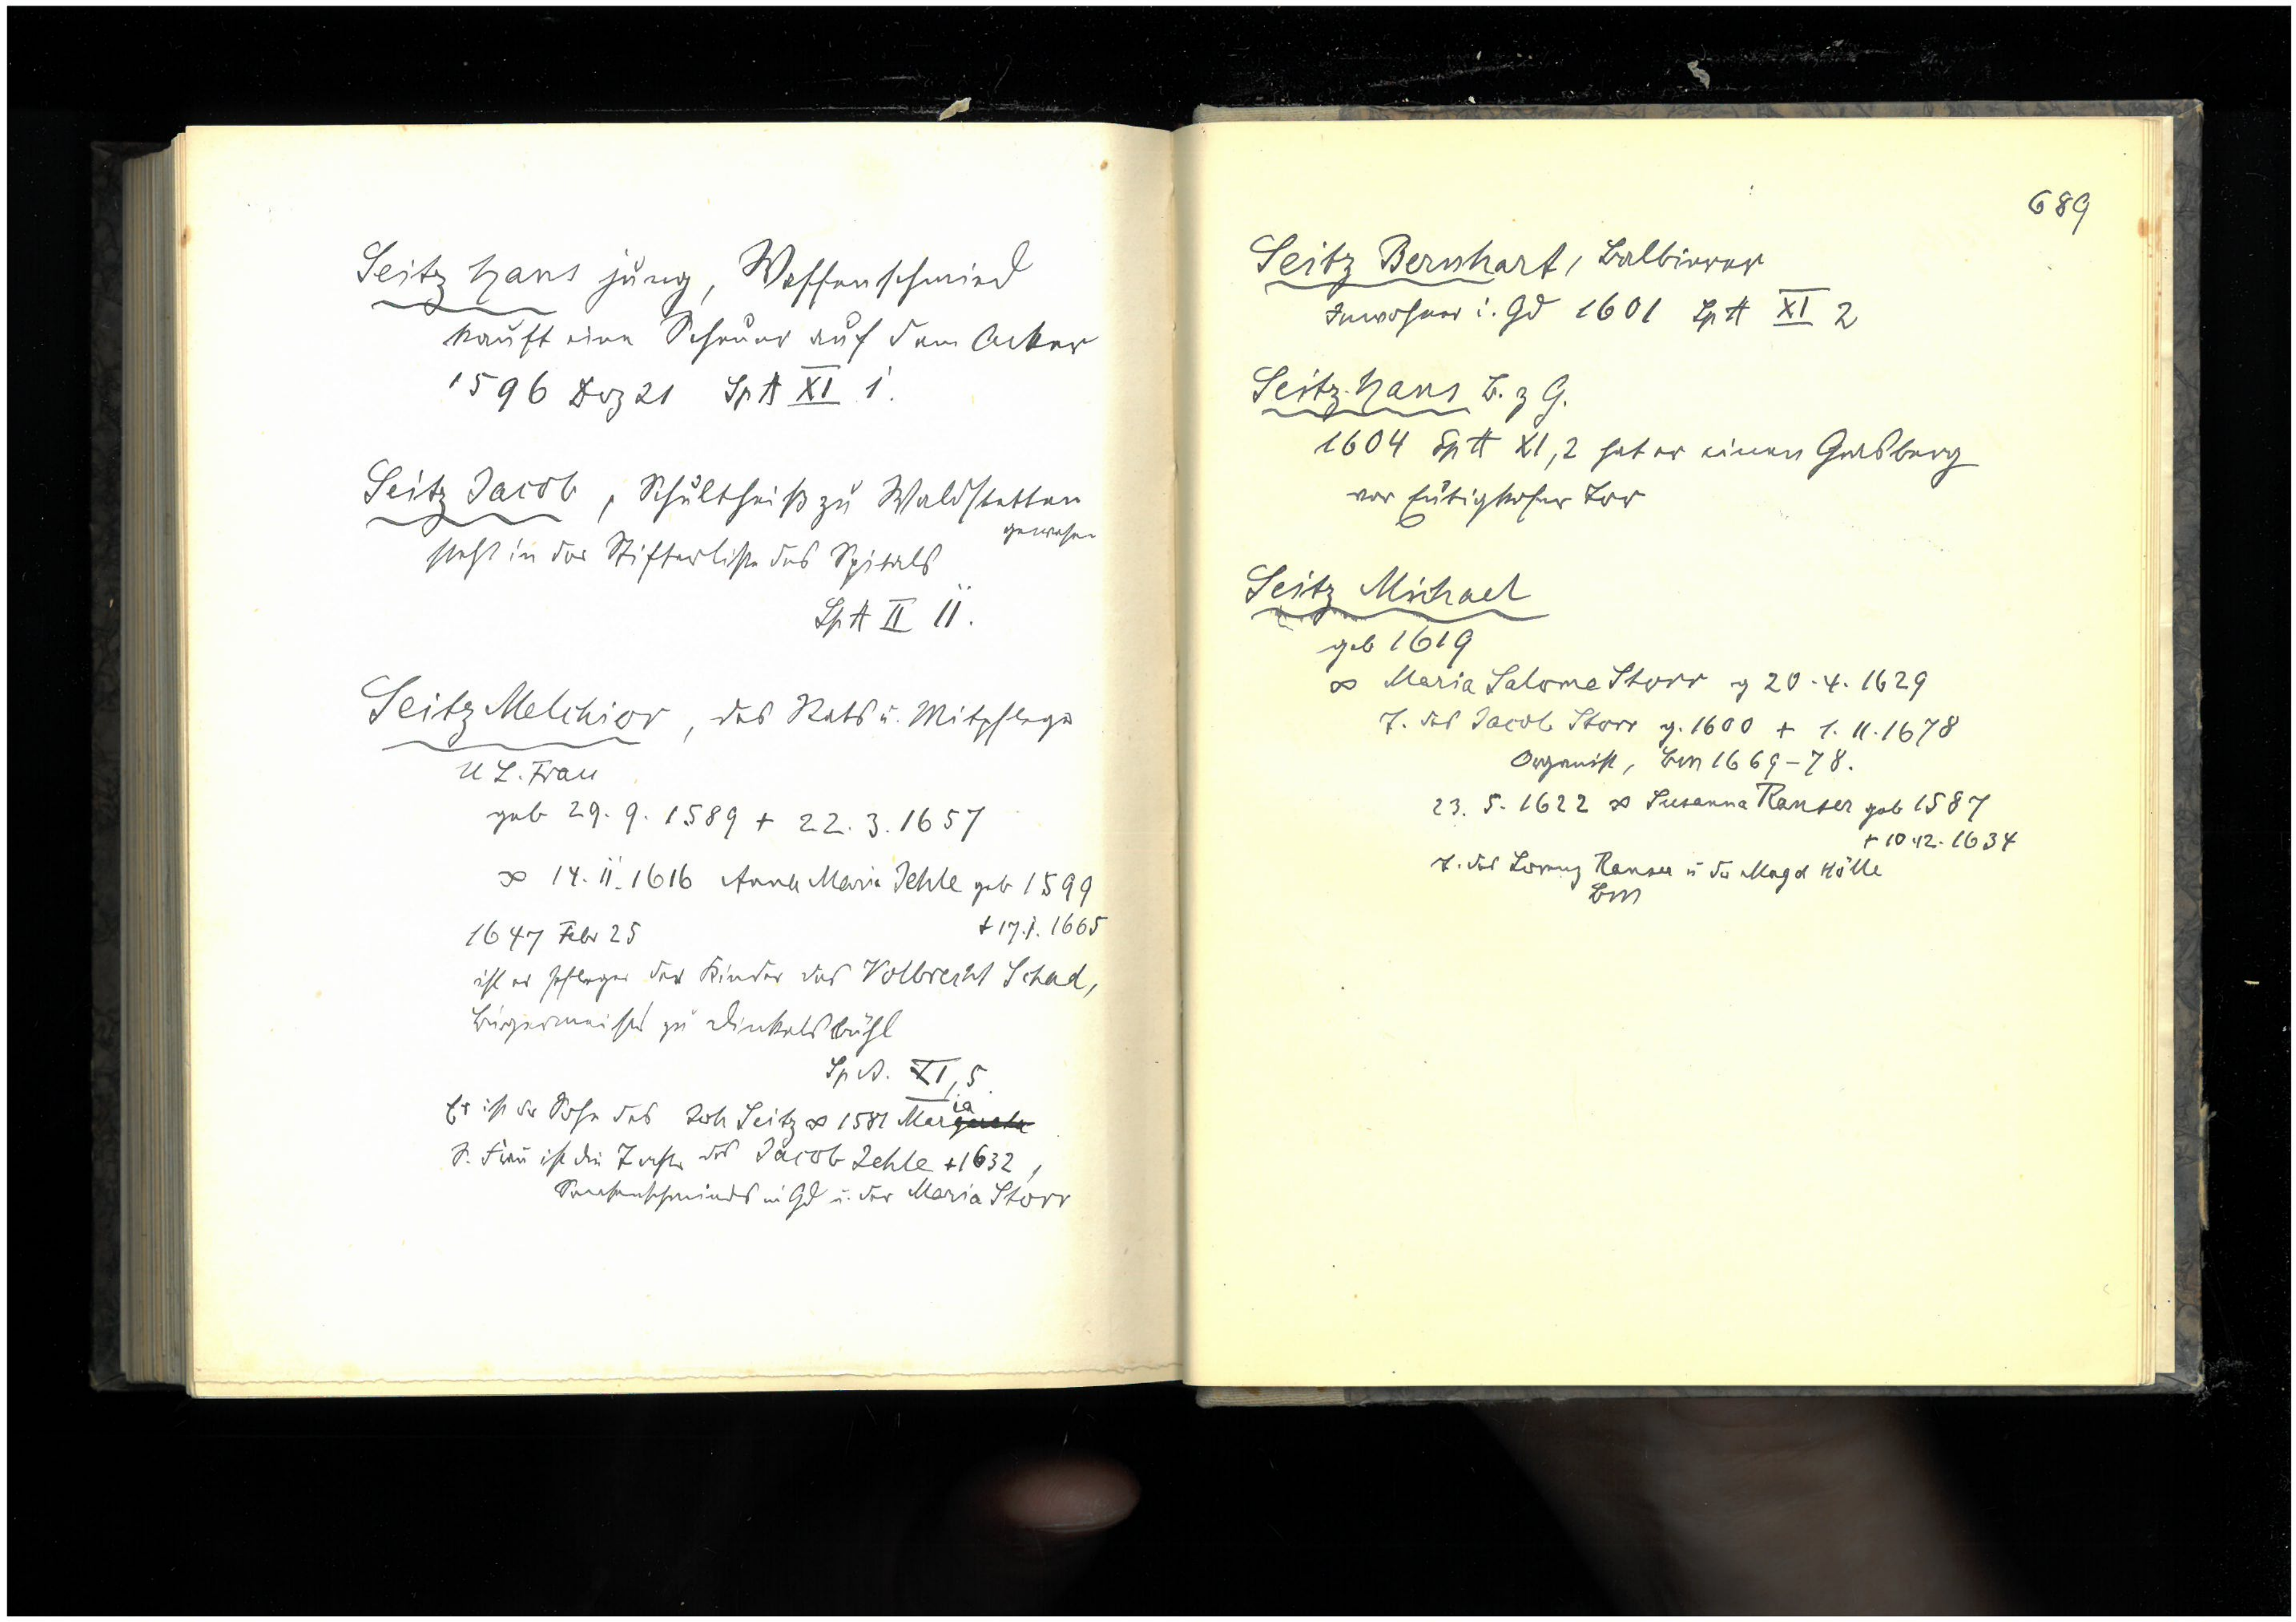 Seitz Hans jung, Waffenschmied
kauft eine Scheuer auf dem Acker
1596 Dez 21 SpA XI 1.
Seitz Jacob, Schultheiß zu Waldstetten
gewesen
steht in der Stifterliste des Spitals
SpA II 11.
Seitz Melchior, des Rats u. Mitpfleger
U L. Frau
geb 29. 9. 1589 + 22. 3. 1657
∞ 14. 11. 1616 Anna Maria Jehle geb 1599
+ 17. 1. 1665
1647 Febr 25
ist er Pfleger der Kinder des Volbrecht Schad,
Bürgermeister zu Dinkelsbühl
SpA. XI, 5.
Er ist der Sohn des Joh Seitz ∞ 1581 Maria
S. Frau ist die Tochter des Jacob Jehle + 1632,
Sensenschmieds in Gd u. der Maria Storr
689
Seitz Bernhart, Balbierer
Inwohner i. Gd 1601 SpA XI 2
Seitz Hans B. z G.
1604 SpA XI, 2 hat er einen
vor Eutighofer Tor
Seitz Michael
geb 1619
∞ Maria Salome Storr g 20. 4. 1629
T. des Jacob Storr g. 1600 + 1. 11. 1678
Organist, Bm 1669-78.
23. 5. 1622 ∞ Susanna Ranser geb 1587
+ 10. 12. 1634
T. des Lorenz Ranser u der Magd Hölle
Bm